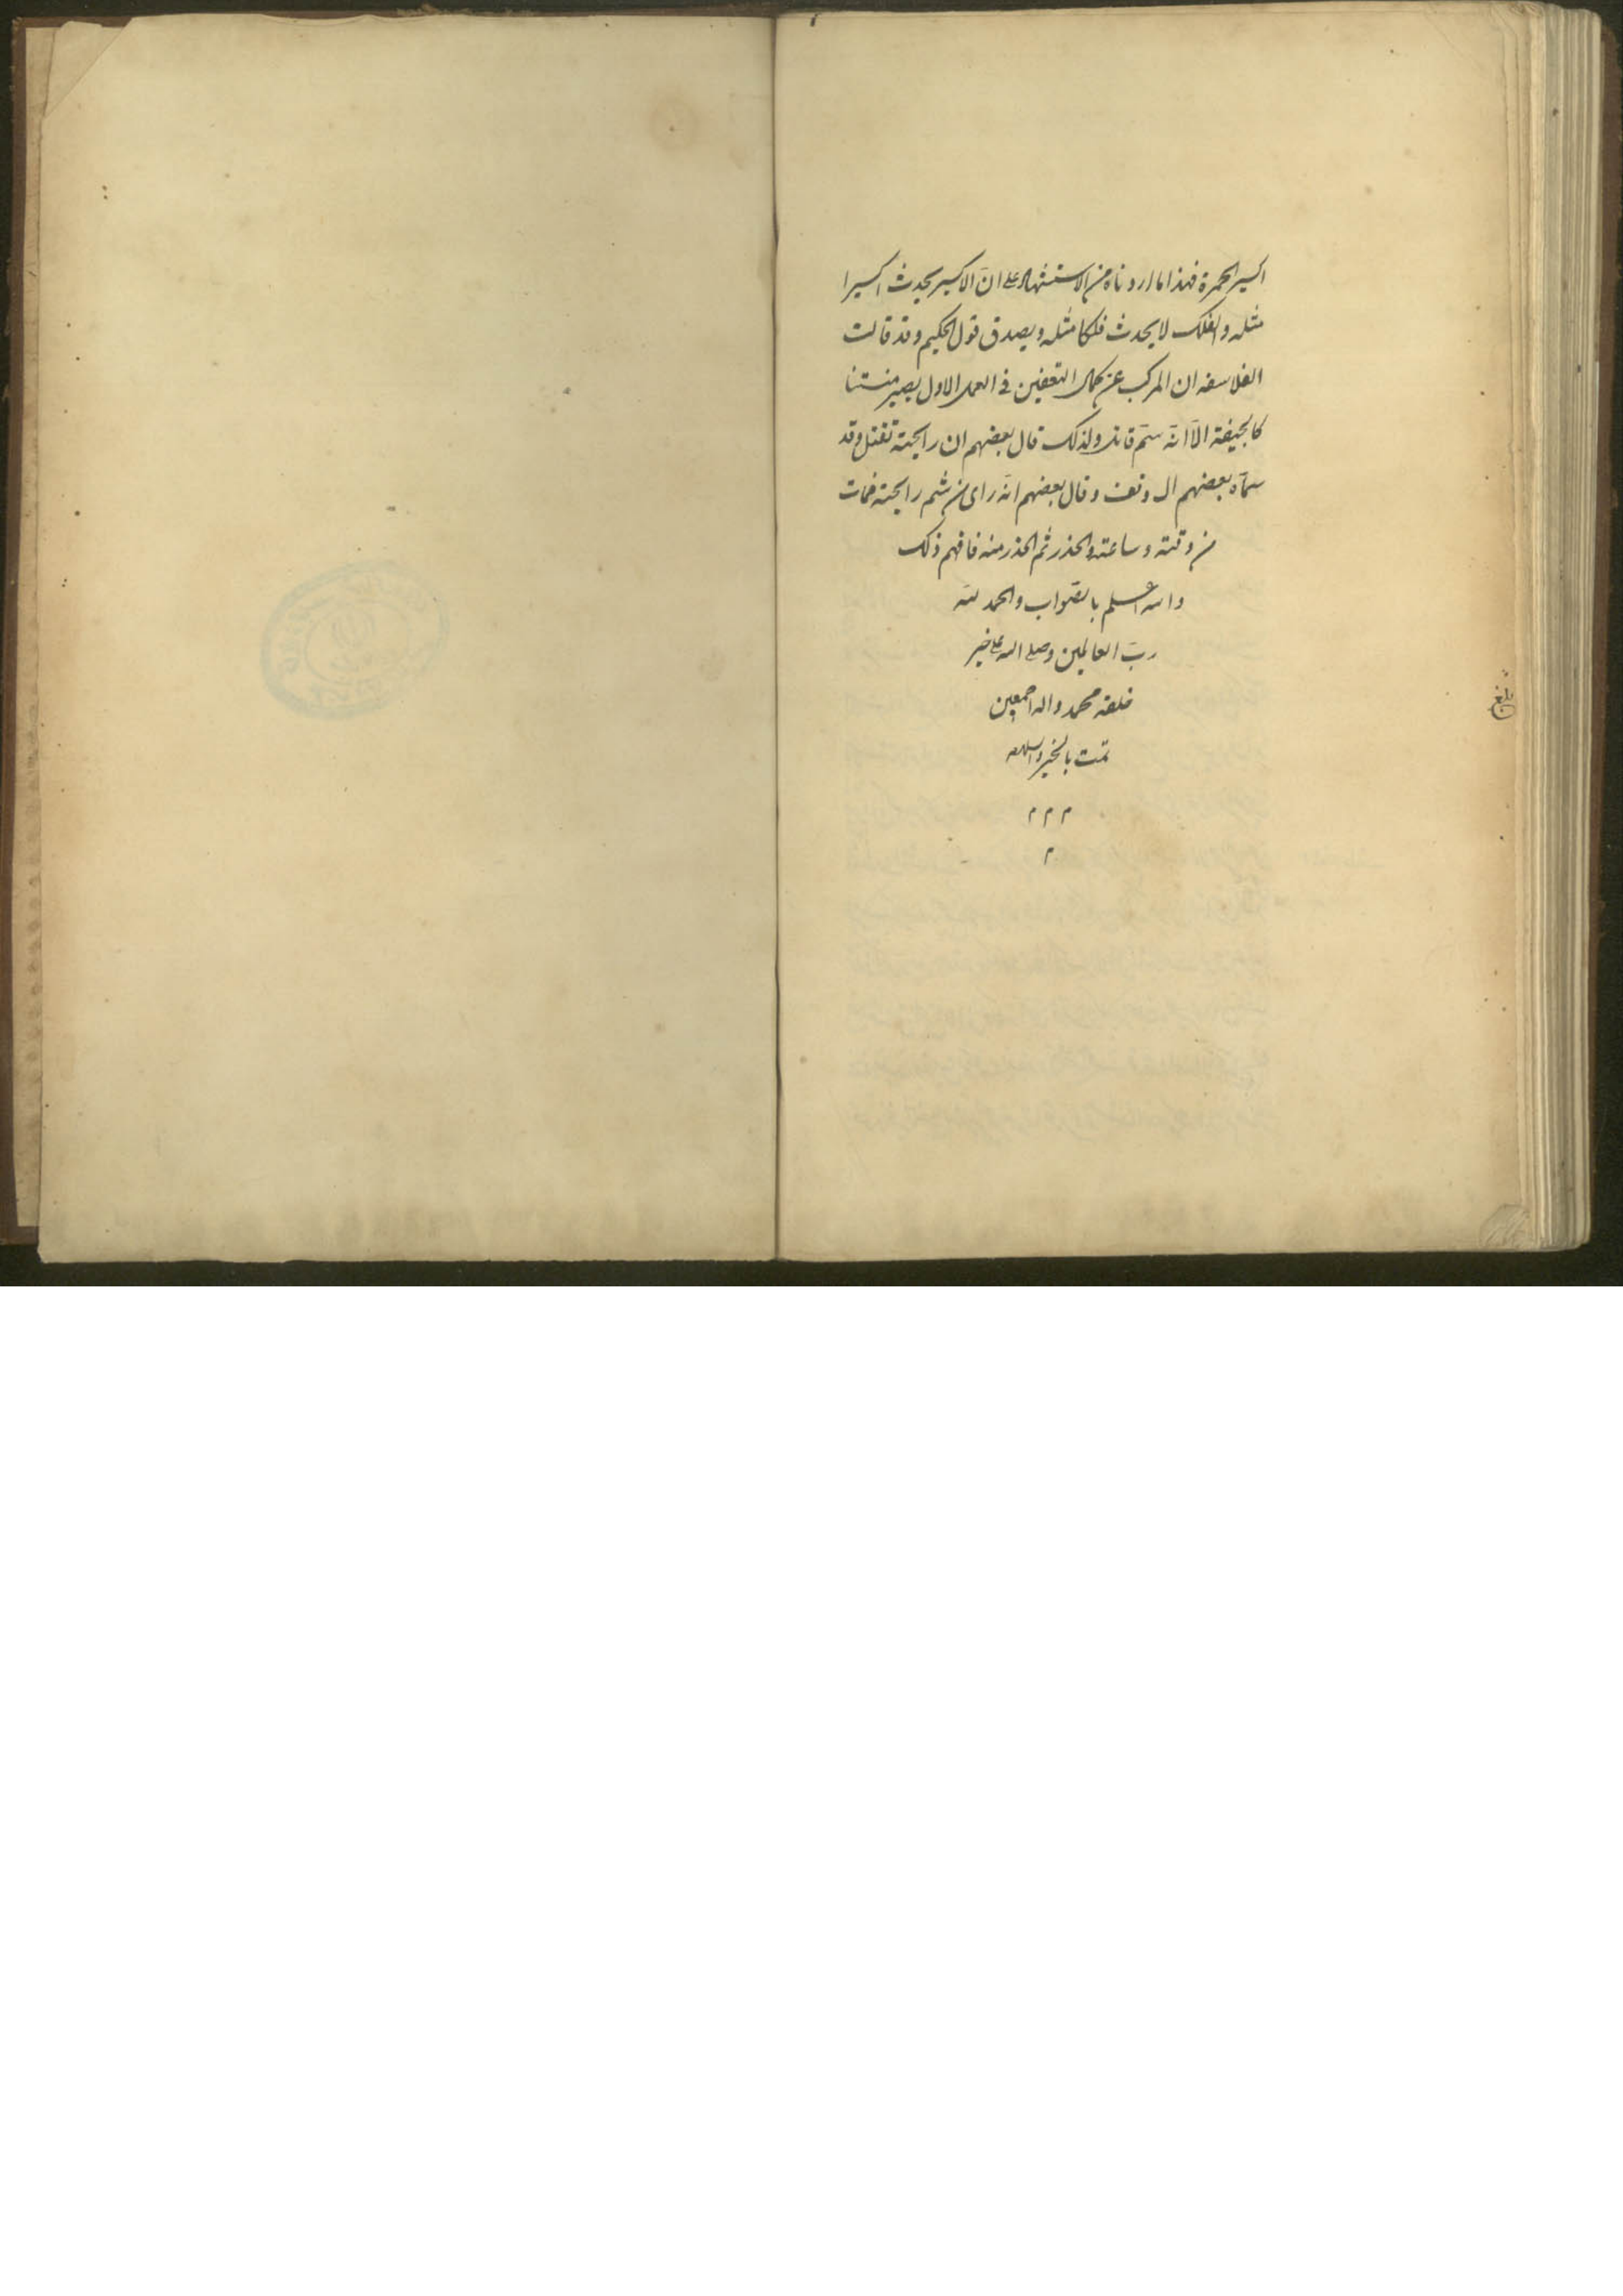 اکسیر الحمرة فهذا ما اردناه من الاستشهاد علی انّ الاکسیر یحدث اکسیرا
مثله والفلک لا یحدث فلکا مثله ویصدق قول الحکیم وقد قالت
الفلاسفه ان المرکب عن کمال التعفین فی العمل الاول یصیر منتنا
کالجیفة الّا انّه سمّ قاتل ولذلک قال بعضهم ان رایحته تقتل وقد
سمّاه بعضهم وقال بعضهم انّه رای من شم رایحته فمات
من وقته وساعته والحذر ثم الحذر منه فافهم ذلک
والله اعلم بالصّواب والحمد لله
ربّ العالمین وصلی الله علی خیر
خلقه محمد واله اجمعین
تمّت بالخیر
م م م
م
بلغ